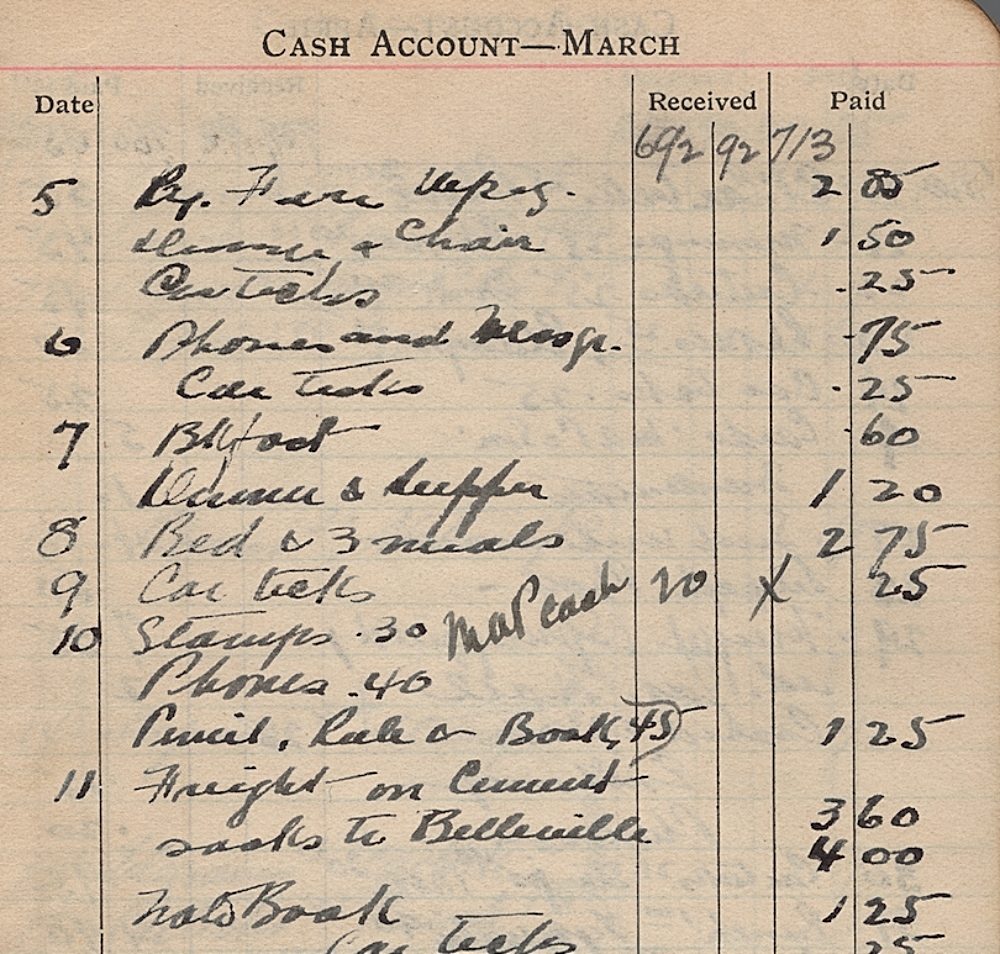 CASH ACCOUNT—MARCH
Date Received Paid
692 92 713
5 Ry. Fare Wpeg. 2 85
Dinner & Chair 1 50
Car ticks .25
6 Phones and Messgr. .75
Car ticks .25
7 Bkfast .60
Dinner & Supper 1 20
8 Bed & 3 meals 2 75
9 Car ticks 20 X 25
10 Stamps .30 cash
Phones .40
Pencil, Rule & Book, 45) 1 25
11 Freight on Cement
sacks to Belleville 3 60
4 00
Note Book 1 25
Car ticks 25